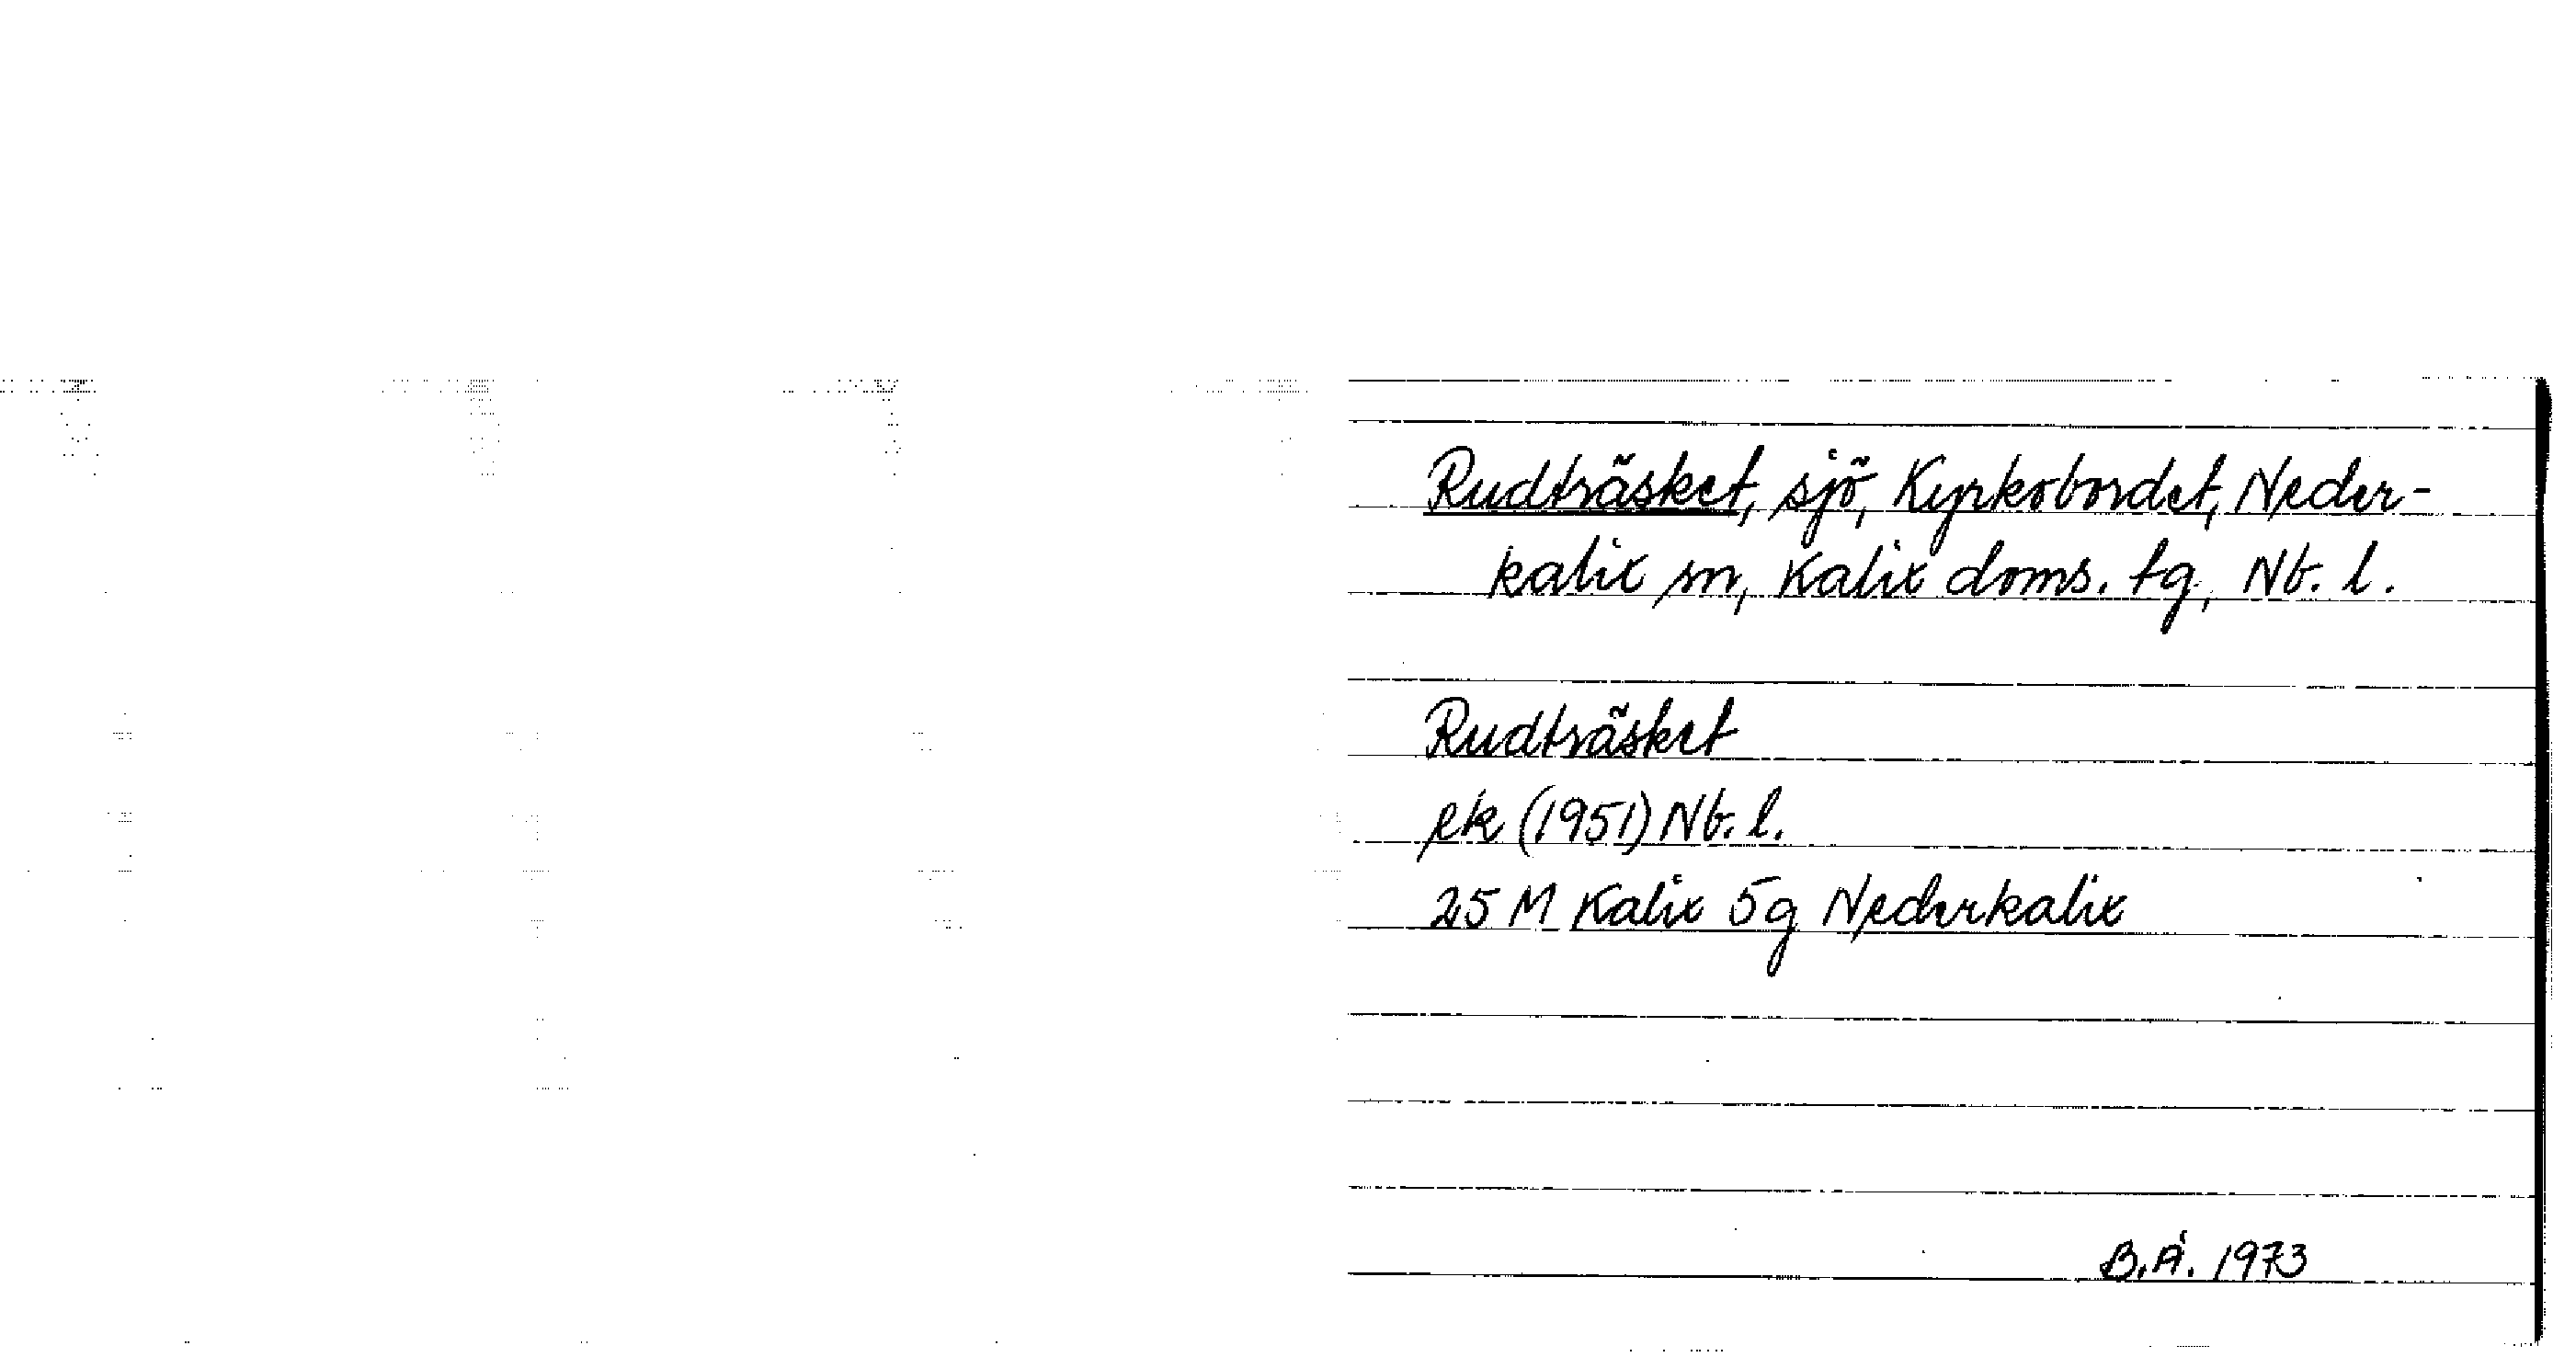 Rudträsket, sjö, Kyrkobordet, Neder-
kalix sn, Kalix doms. tg, Nb. l.
Rudträsket
ek (1951) Nb. l.
25 M Kalix 5g Nederkalix
B.Å. 1973